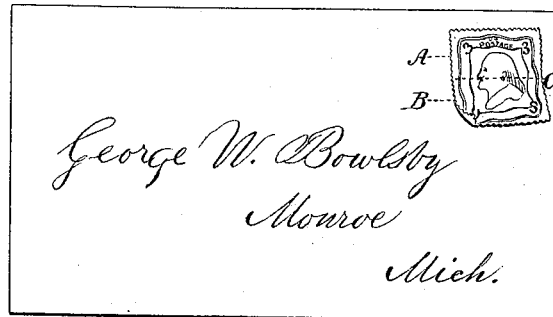 3 POSTAGE 3
A
C
B
3
George W. Bowlsby
Monroe
Mich.